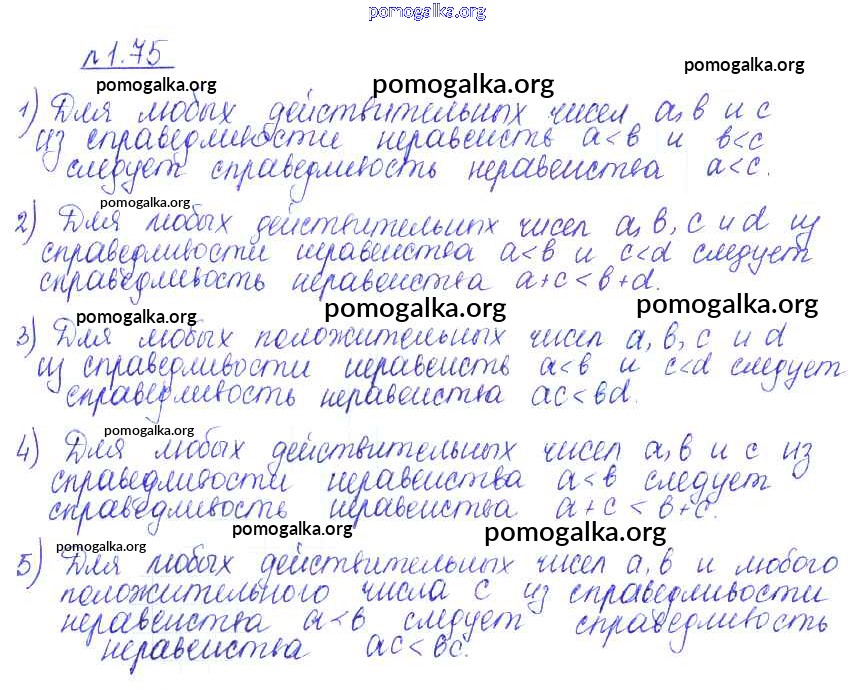 pomogalka.org
№1.75
pomogalka.org pomogalka.org pomogalka.org
1) Для любых действительных чисел a, b и c
из справедливости неравенств a<b и b<c
следует справедливость неравенства a<c.
pomogalka.org
2) Для любых действительных чисел a, b, c и d из
справедливости неравенства a<b и c<d следует
справедливость неравенства a+c<b+d.
pomogalka.org pomogalka.org pomogalka.org
3) Для любых положительных чисел a, b, c и d
из справедливости неравенств a<b и c<d следует
справедливость неравенства ac<bd.
pomogalka.org
4) Для любых действительных чисел a, b и c из
справедливости неравенства a<b следует
справедливость неравенства a+c<b+c.
pomogalka.org pomogalka.org
pomogalka.org
5) Для любых действительных чисел a, b и любого
положительного числа c из справедливости
неравенства a<b следует справедливость
неравенства ac<bc.